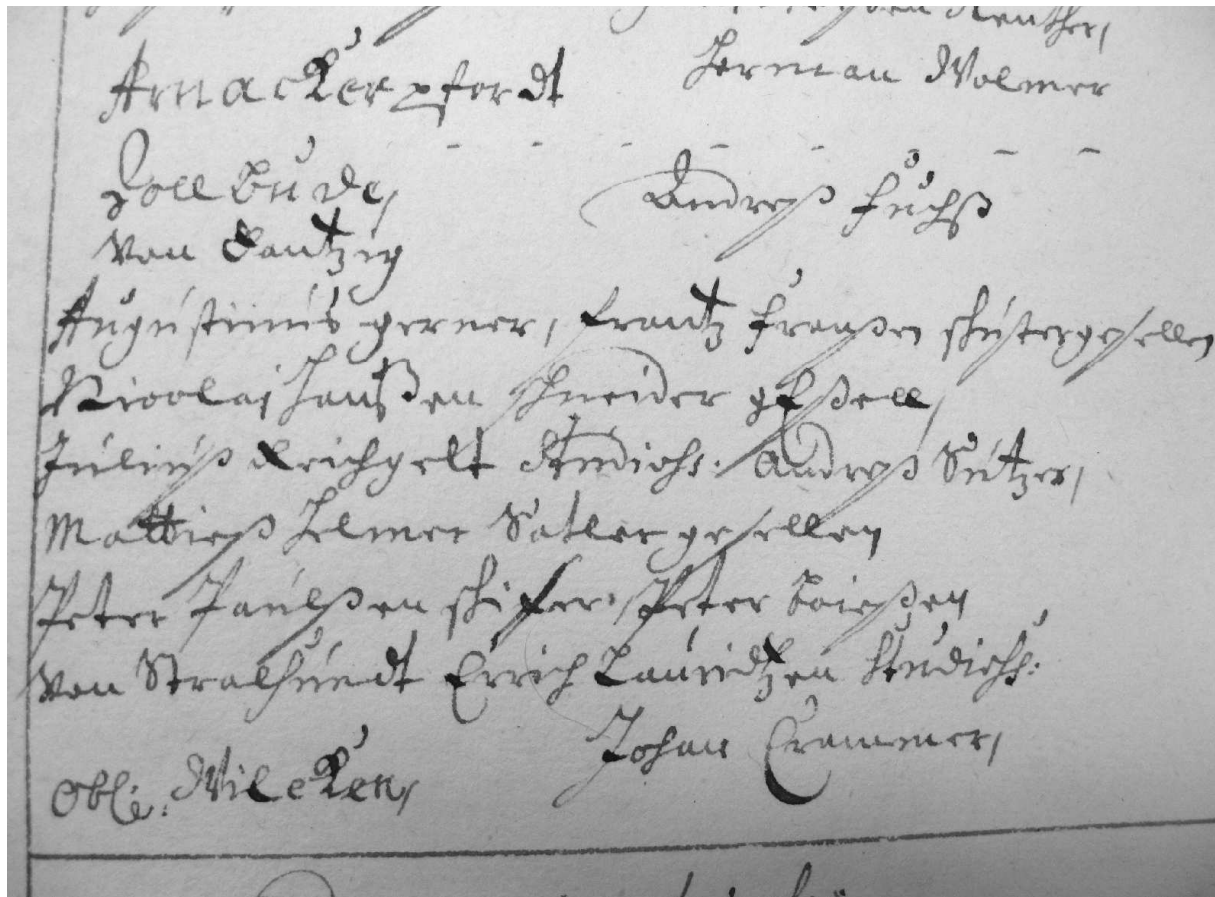 Reuther,
Arnackerpfordt
Herman Wolmer
Zollbude,
Andreß Fuchß
Von Dantzig
Augustinus gerner, Frantz Franßen schustergesellen
Nicolai Hanßen schneider geßell,
Juliuß Reichgelt studiosi: Andreß Sutzer,
Mattieß Helmer Satler gesellen
Peter Paulßen schifer, Peter Boießen
Von Stralsundt Errich Lauridtzen studiosi:
Johan Crammer,
Wilcken,